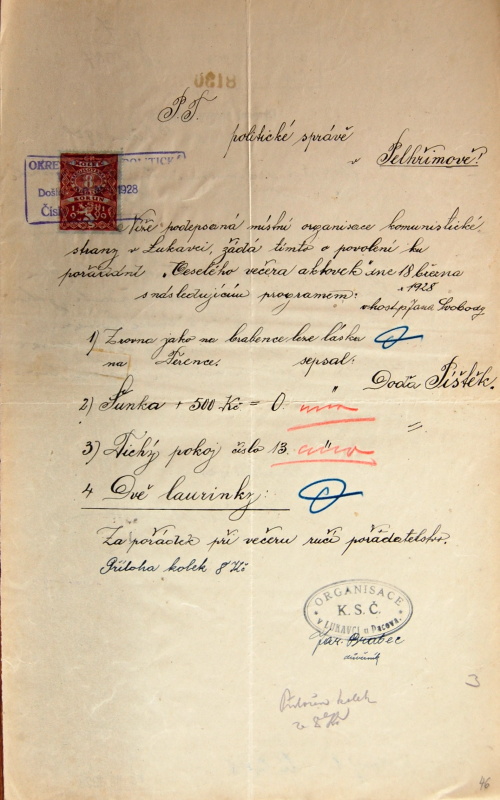 8190
P. T.
politické správě
v Pelhřimově!
OKRES POLITICKÁ
Došlo 1928
Čís
Níže podepsaná místní organisace komunistické
strany v Lukavci, žádá tímto o povolení ku
pořádání „Veselého večera aktovek" dne 18 března
1928
s následujícím programem: v host. p. Jana Svobody
1) Zrovna jako na brabence leze láska
na Ference. sepsal:
Doďa Píštěk.
2) Šunka + 500 Kč = 0. "
3) Tichý pokoj číslo 13. "
4 Dvě laurinky:
Za pořádek při večeru ručí pořadatelstvo.
Příloha kolek 8 Kč
ORGANISACE
K. S. Č.
V LUKAVCI u Pacova.
Jar. Brabec
důvěrník
Přiložen kolek
za 8 Kč
3
46